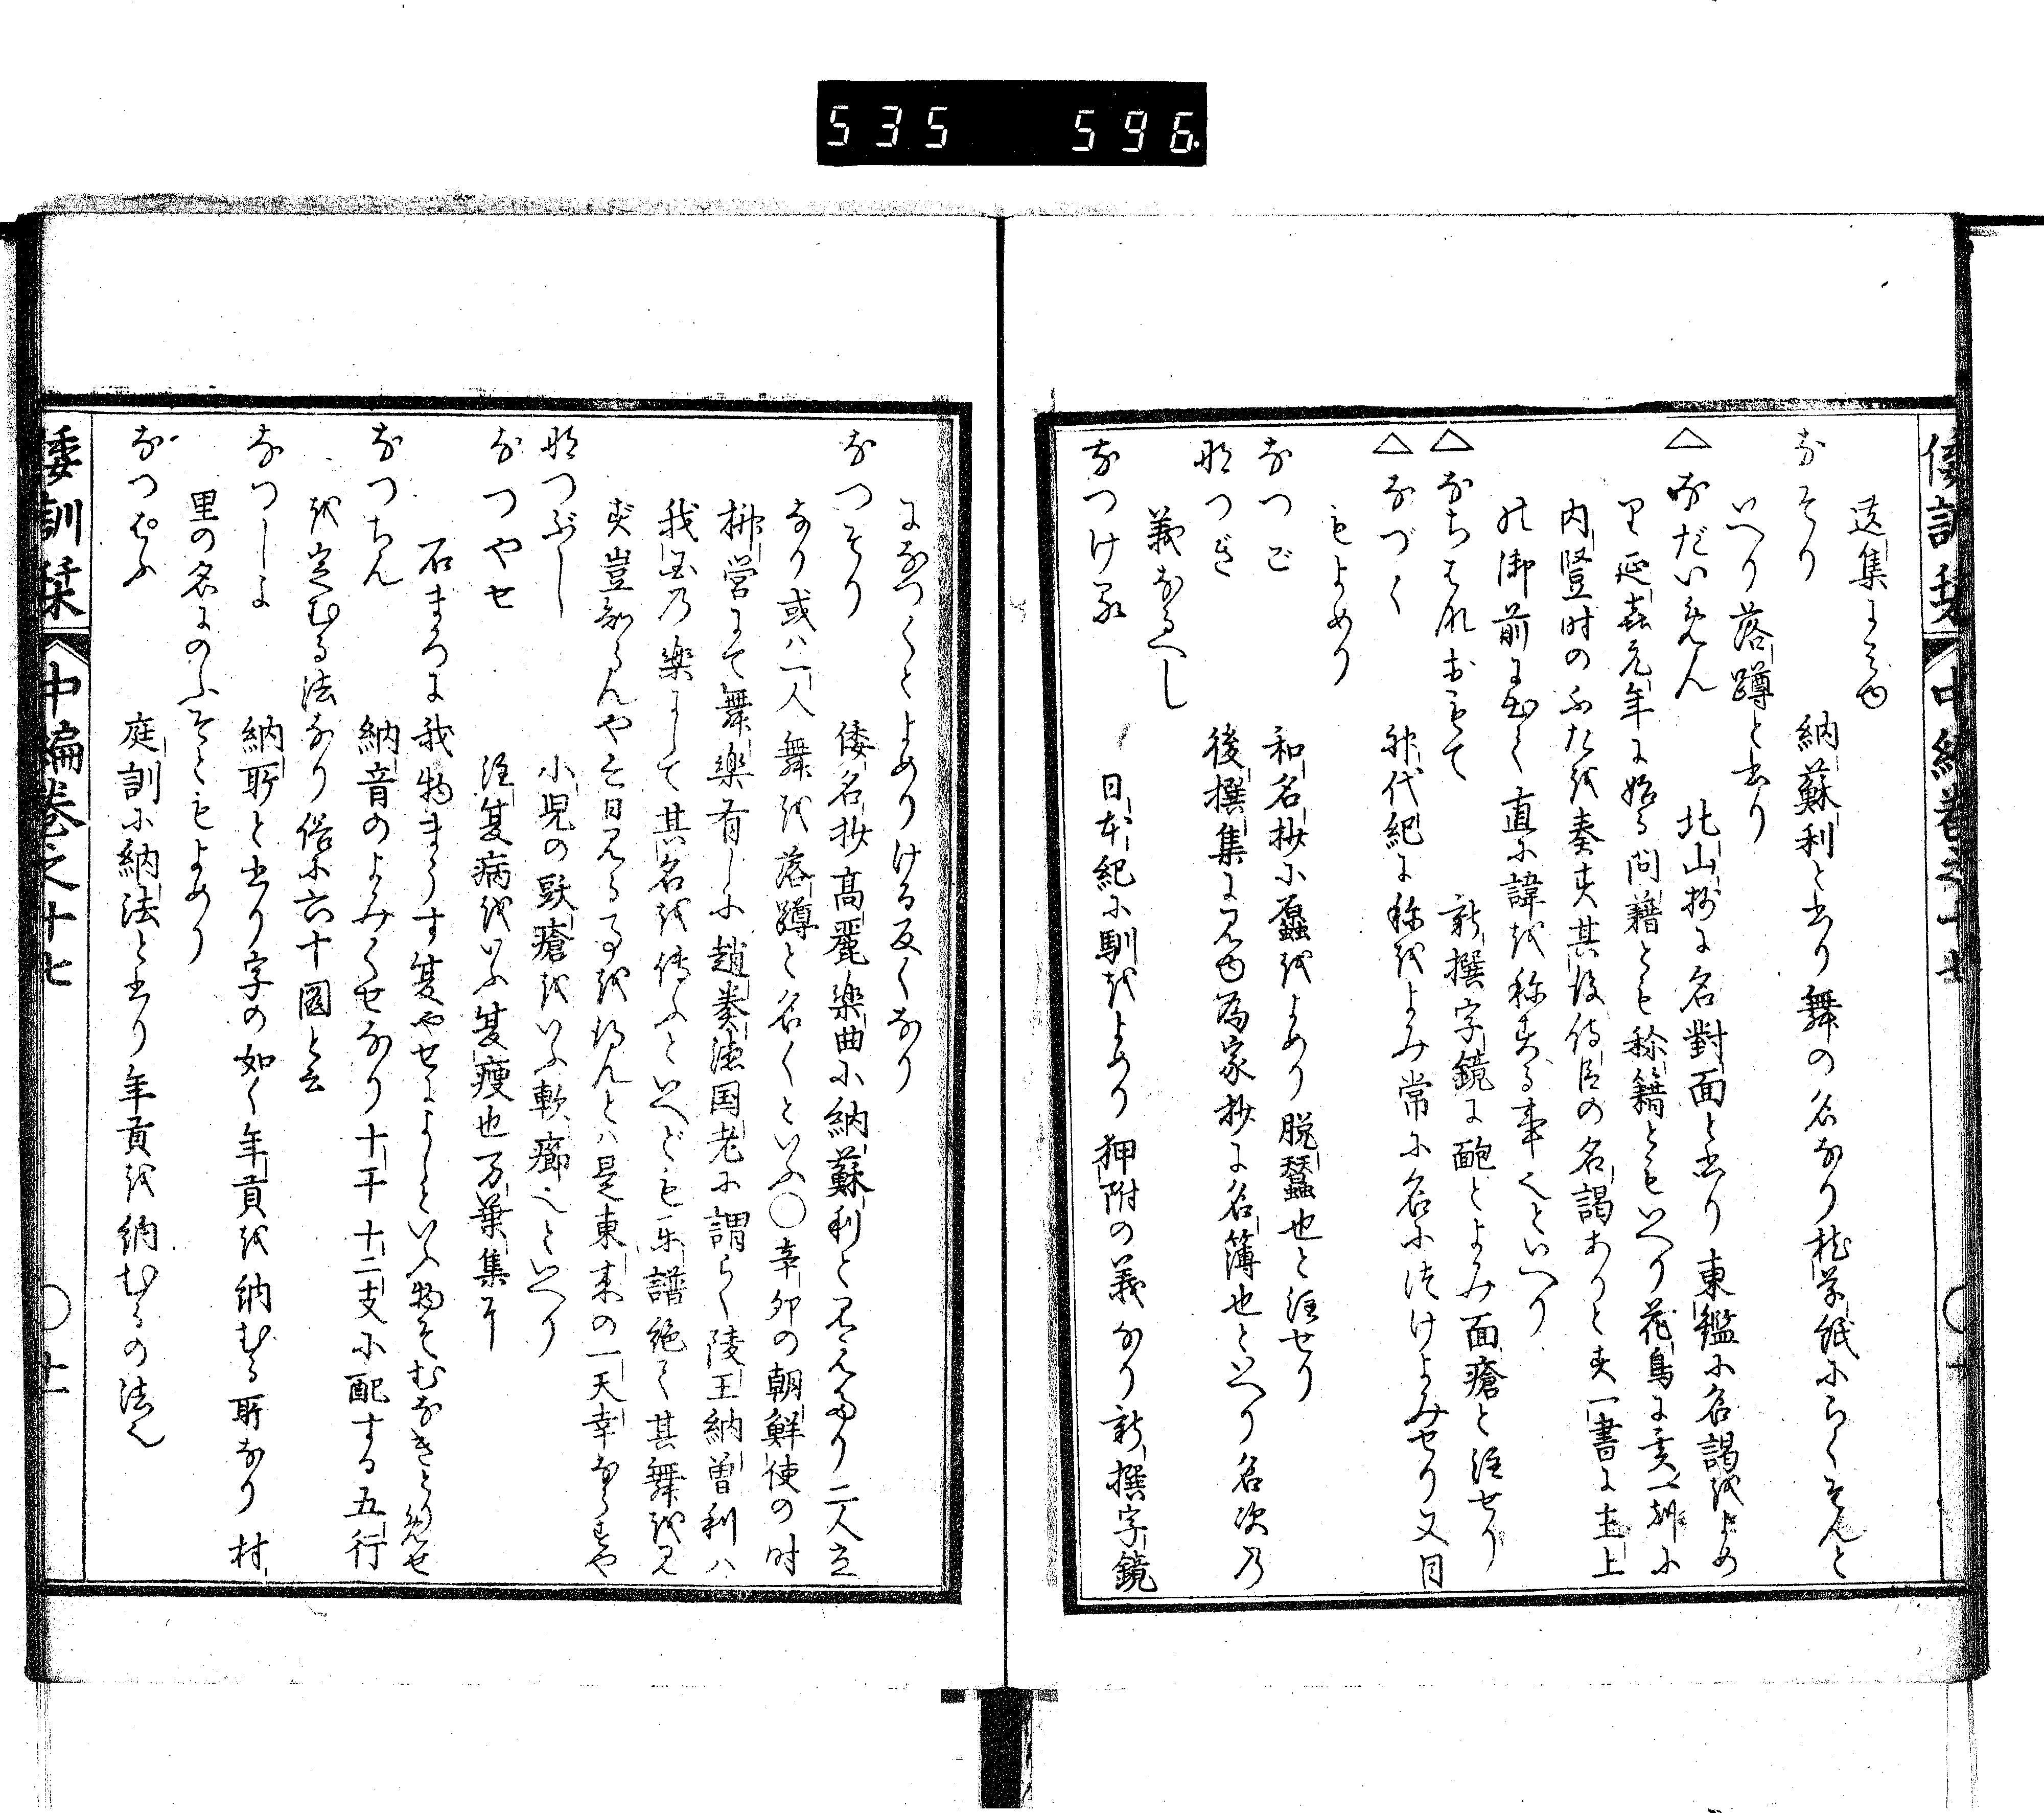 535 596
倭訓栞 中編巻之十七 ○十
選集に見ゆ
なそり 納蘇利と書り舞の名なり枕草紙にらくそんと
いへり落蹲と書り
△なだいめん 北山抄に名對面と書り東鑑に名謁をよめ
り延喜元年に始る問籍とも称籍ともいへり花鳥に亥一刻に
内豎时のふだを奏す其後侍臣の名謁ありとす一書に主上
の御前に出て直に諱を称する事也といへり
△なちはれおもて 新撰字鏡に皰とよみ面瘡と注せり
△なづく 神代紀に称をよみ常に名につけよみせり又目
もよめり
なつご 和名抄に䘉をよめり脱蠶也と注せり
なつぎ 後撰集に見ゆ為家抄に名簿也といへり名次の
義なるべし
なつける 日本紀に馴をよめり狎附の義なり新撰字鏡
になつくとよめりける反くなり
なつそり 倭名抄高麗楽曲に納蘇利と見えたり二人立
なり或ハ一人舞を落蹲と名くといふ○辛卯の朝鮮使の时
柳営にて舞樂有しに趙泰億国老に謂らく陵王納曽利ハ
我国乃樂にして其名を傳ふといへども楽譜絶て其舞を見
ず豈割らんや今日見る事を得んとハ是東来の一天幸ならすや
なつぶし 小児の頭瘡をいふ軟癤也といへり
なつやせ 注夏病をいふ夏痩也万葉集に
石まろに我物まうす夏やせによしといふ物そむなきとりめせ
なつちん 納音のよみくせなり十干十二支に配する五行
を定むる法なり俗に六十圖と云
なつしよ 納所と書り字の如く年貢を納むる所なり村
里の名にのふそともよめり
なつぱふ 庭訓に納法と書り年貢を納むるの法也
倭訓栞 中編巻之十七 ○十一